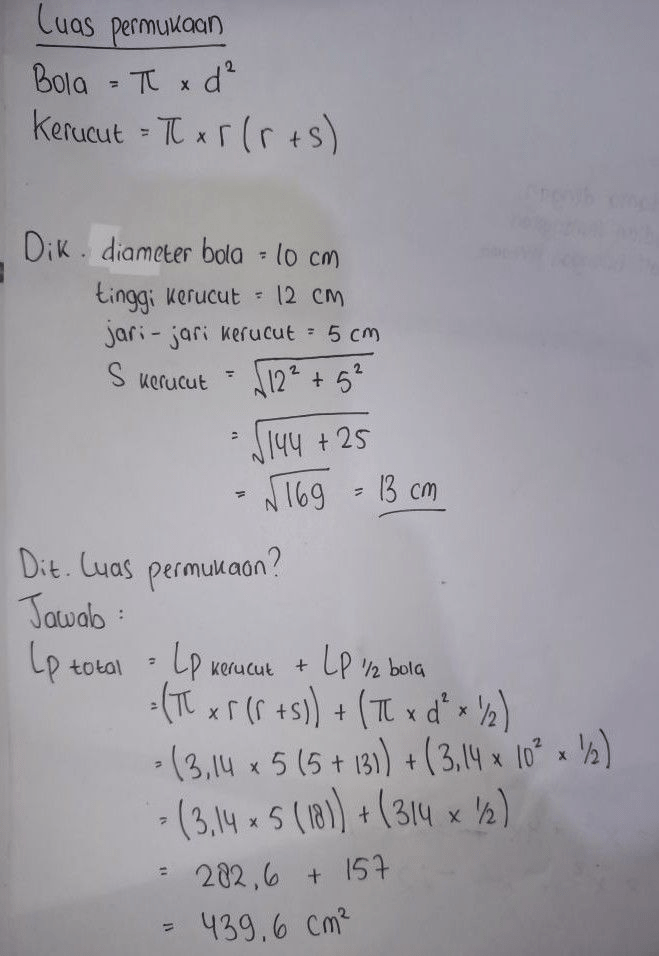 Luas permukaan
Bola = π × d²
Kerucut = π × r (r + s)
Dik. diameter bola = 10 cm
tinggi kerucut = 12 cm
jari-jari kerucut = 5 cm
S kerucut = √12² + 5²
= √144 + 25
= √169 = 13 cm
Dit. Luas permukaan?
Jawab :
Lp total = Lp kerucut + Lp 1/2 bola
= (π × r (r + s)) + (π × d² × 1/2)
= (3,14 × 5 (5 + 13)) + (3,14 × 10² × 1/2)
= (3,14 × 5 (18)) + (314 × 1/2)
= 282,6 + 157
= 439,6 cm²